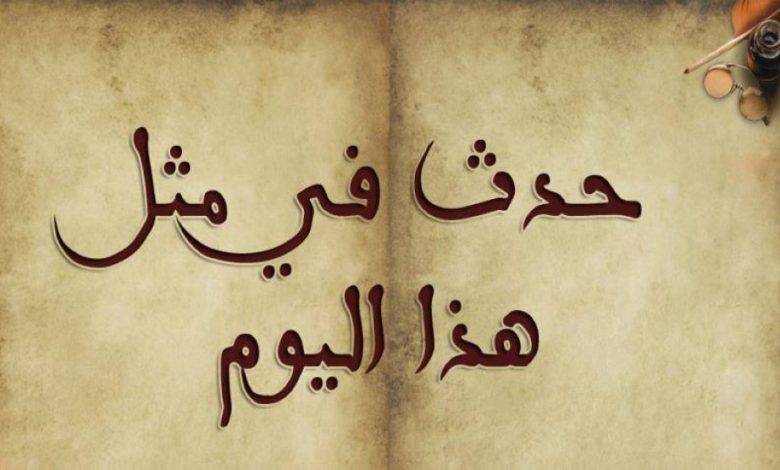 حدث في مثل
هذا اليوم